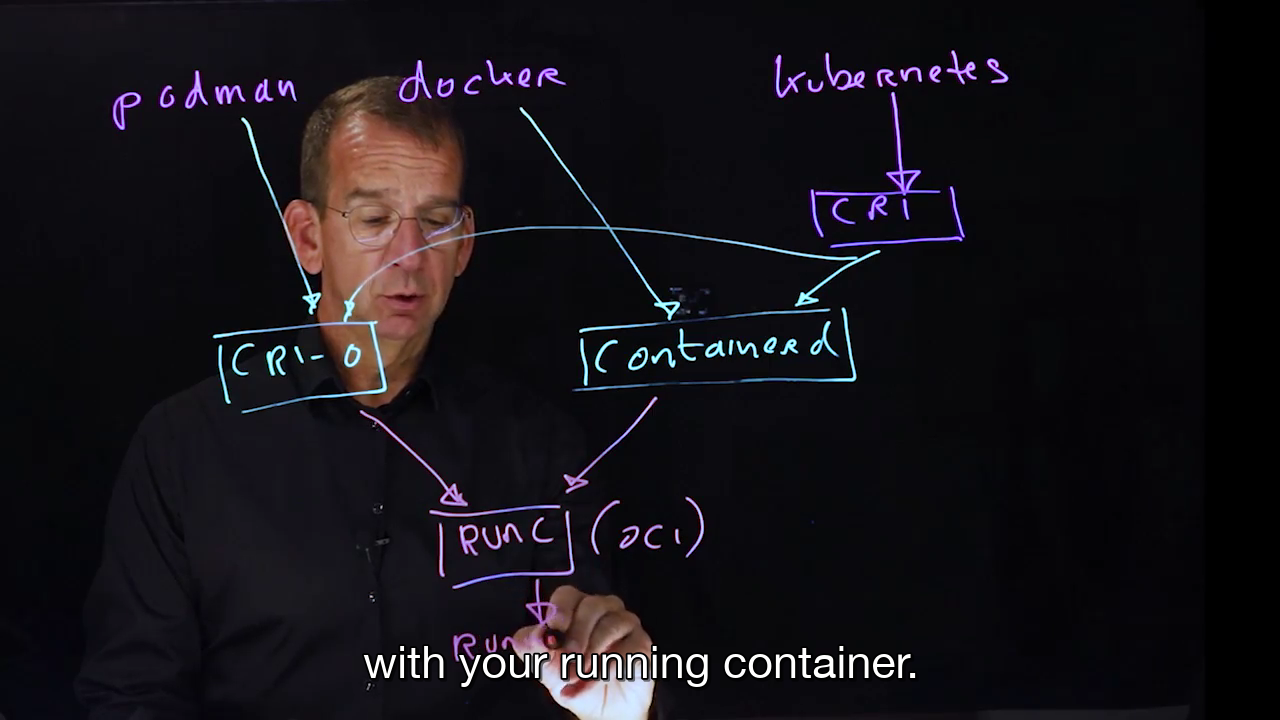 podman docker kubernetes
CRI
CRI-O Containerd
RUNC (OCI)
Run
with your running container.